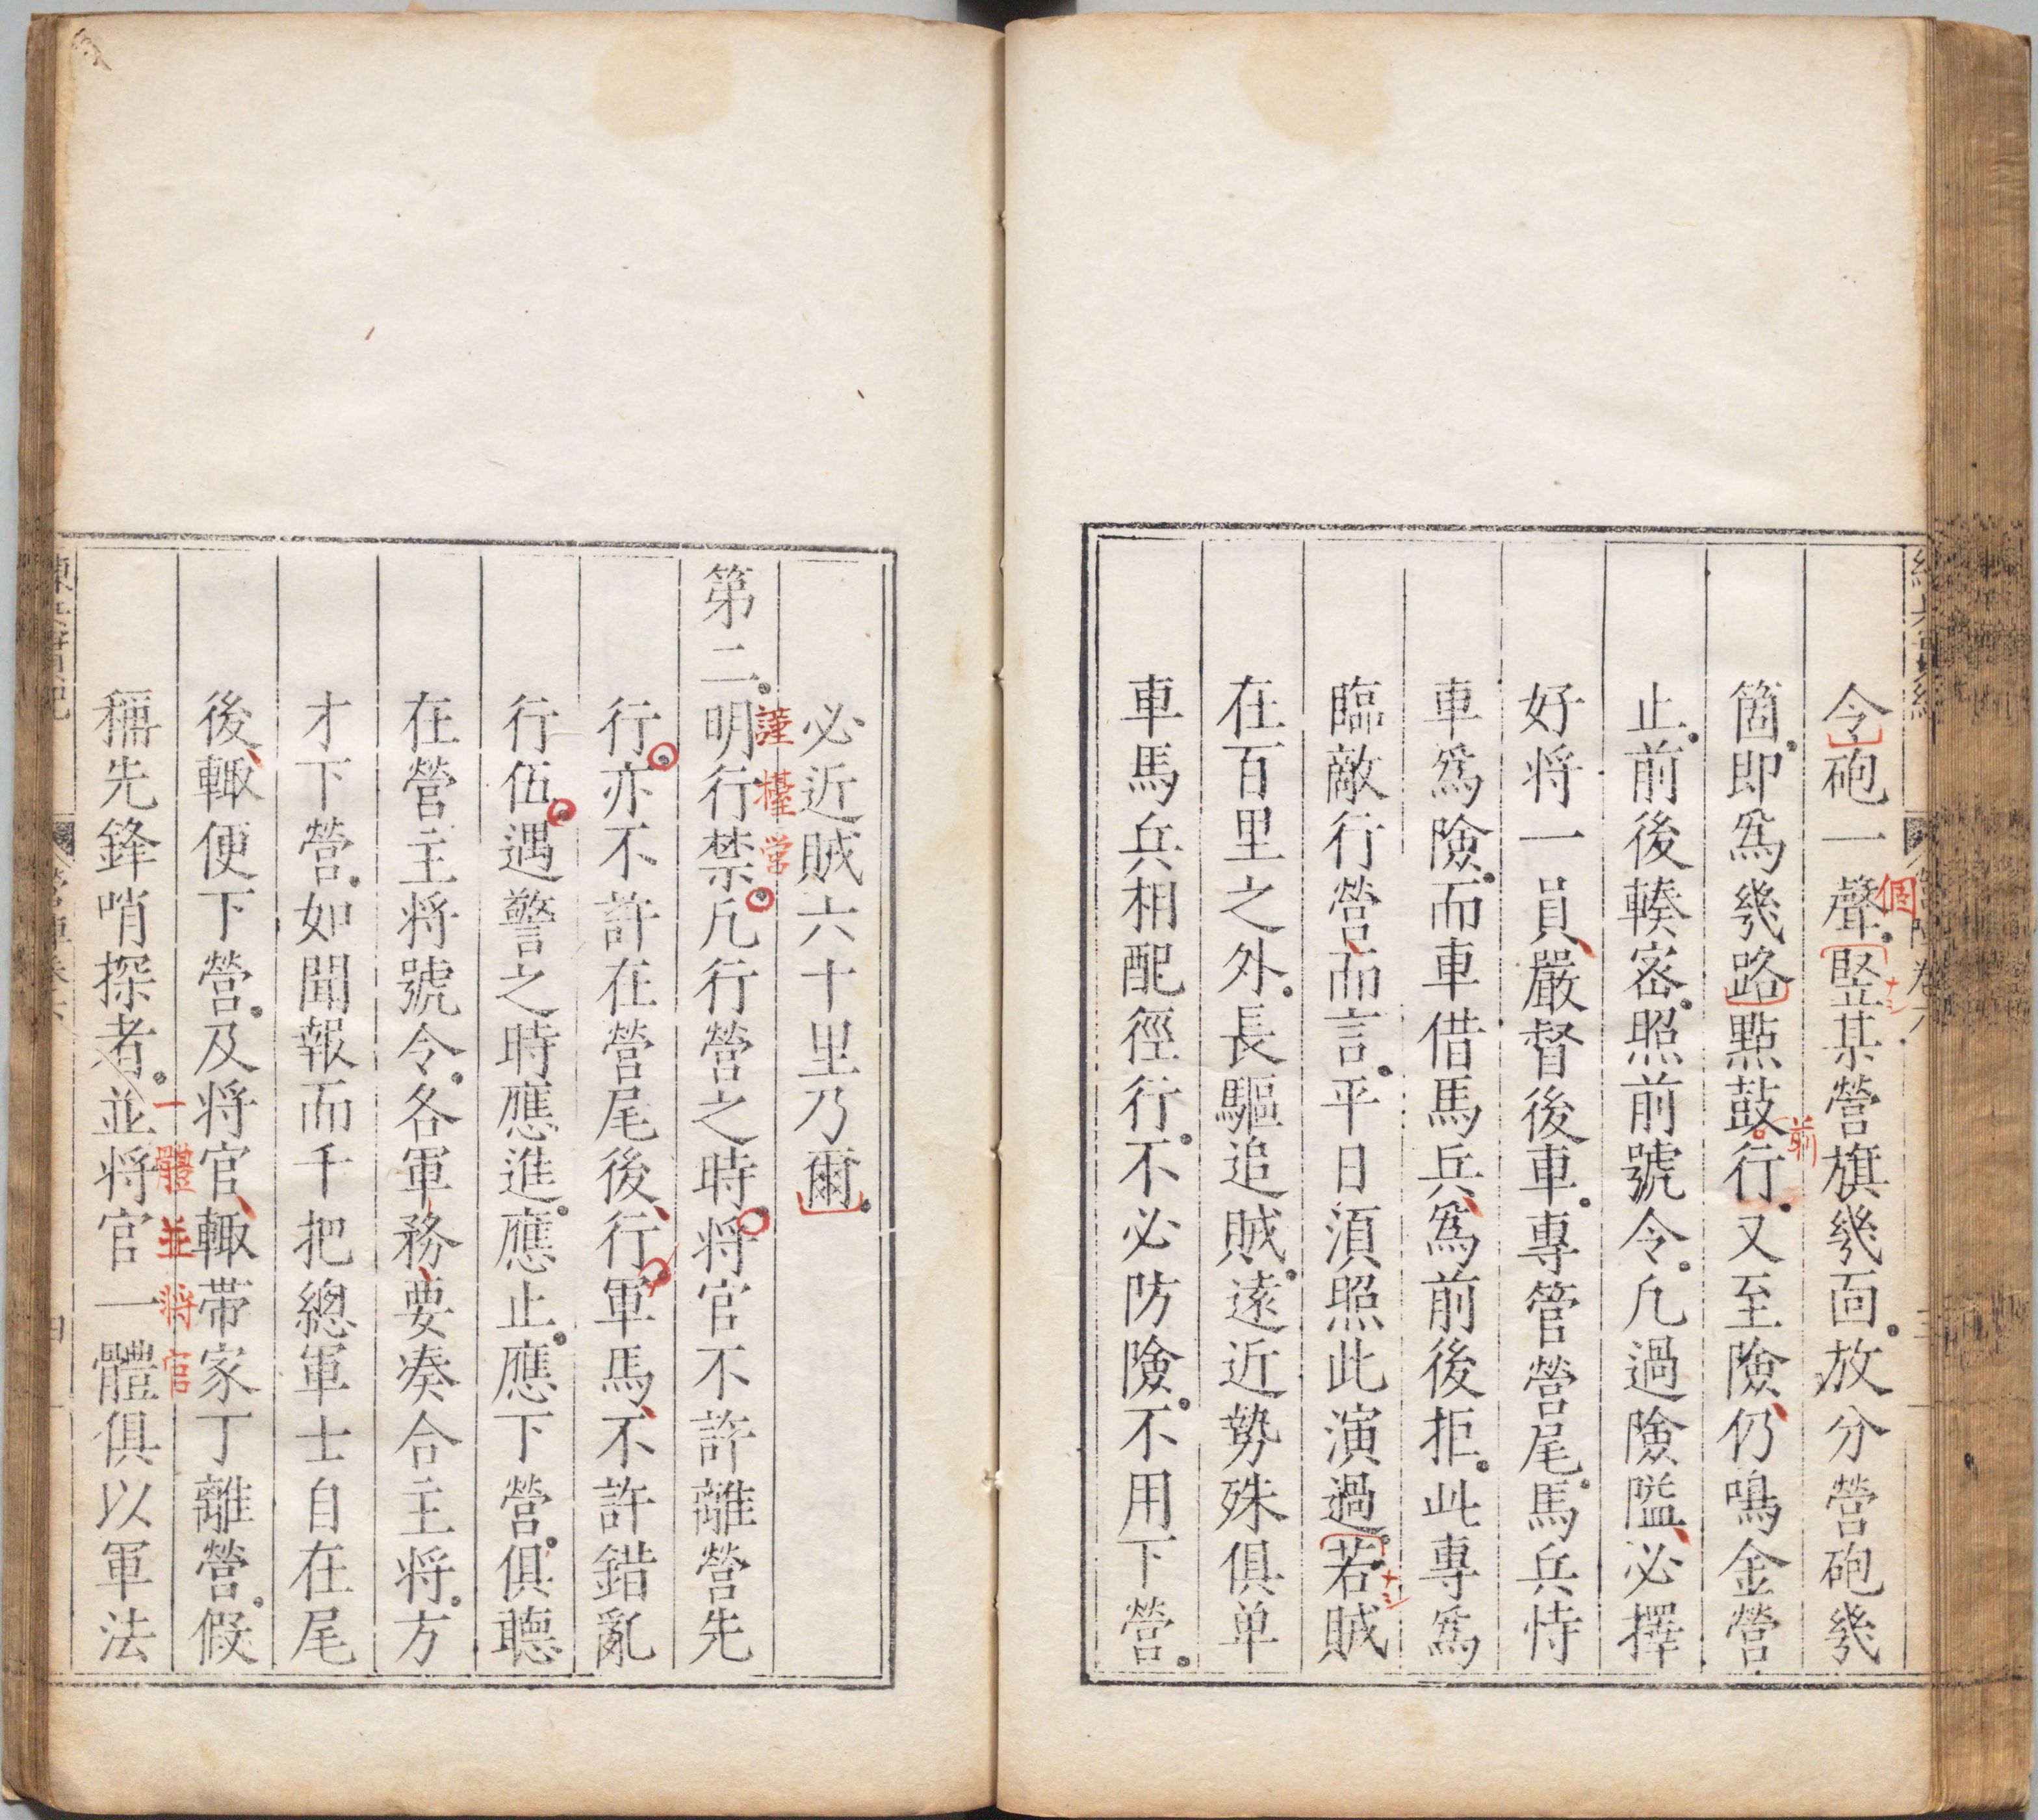 令砲一聲竪某營旗幾面放分營砲幾
箇即爲幾路點鼓行又至險仍鳴金營
止前後輳密照前號令凡過險隘必擇
好将一員嚴督後車專管營尾馬兵恃
車爲險而車借馬兵爲前後拒此專爲
臨敵行營而言平日湏照此演過若賊
在百里之外長驅追賊遠近勢殊俱单
車馬兵相配徑行不必防險不用下營
個
前
必近賊六十里乃爾
第二明行禁凡行營之時将官不許離營先
行亦不許在營尾後行軍馬不許錯亂
行伍遇警之時應進應止應下營俱聽
在營主将號令各軍務要凑合主将方
才下營如聞報而千把總軍士自在尾
後輙便下營及将官輙帯家丁離營假
稱先鋒哨探者並将官一體俱以軍法
一體並将官